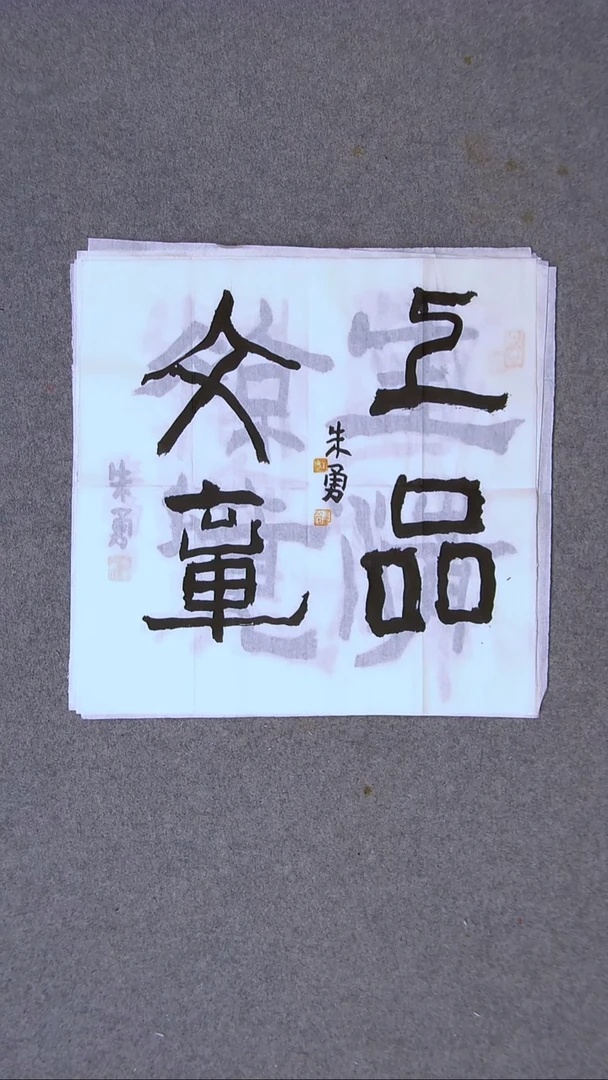 上品
文章
朱勇